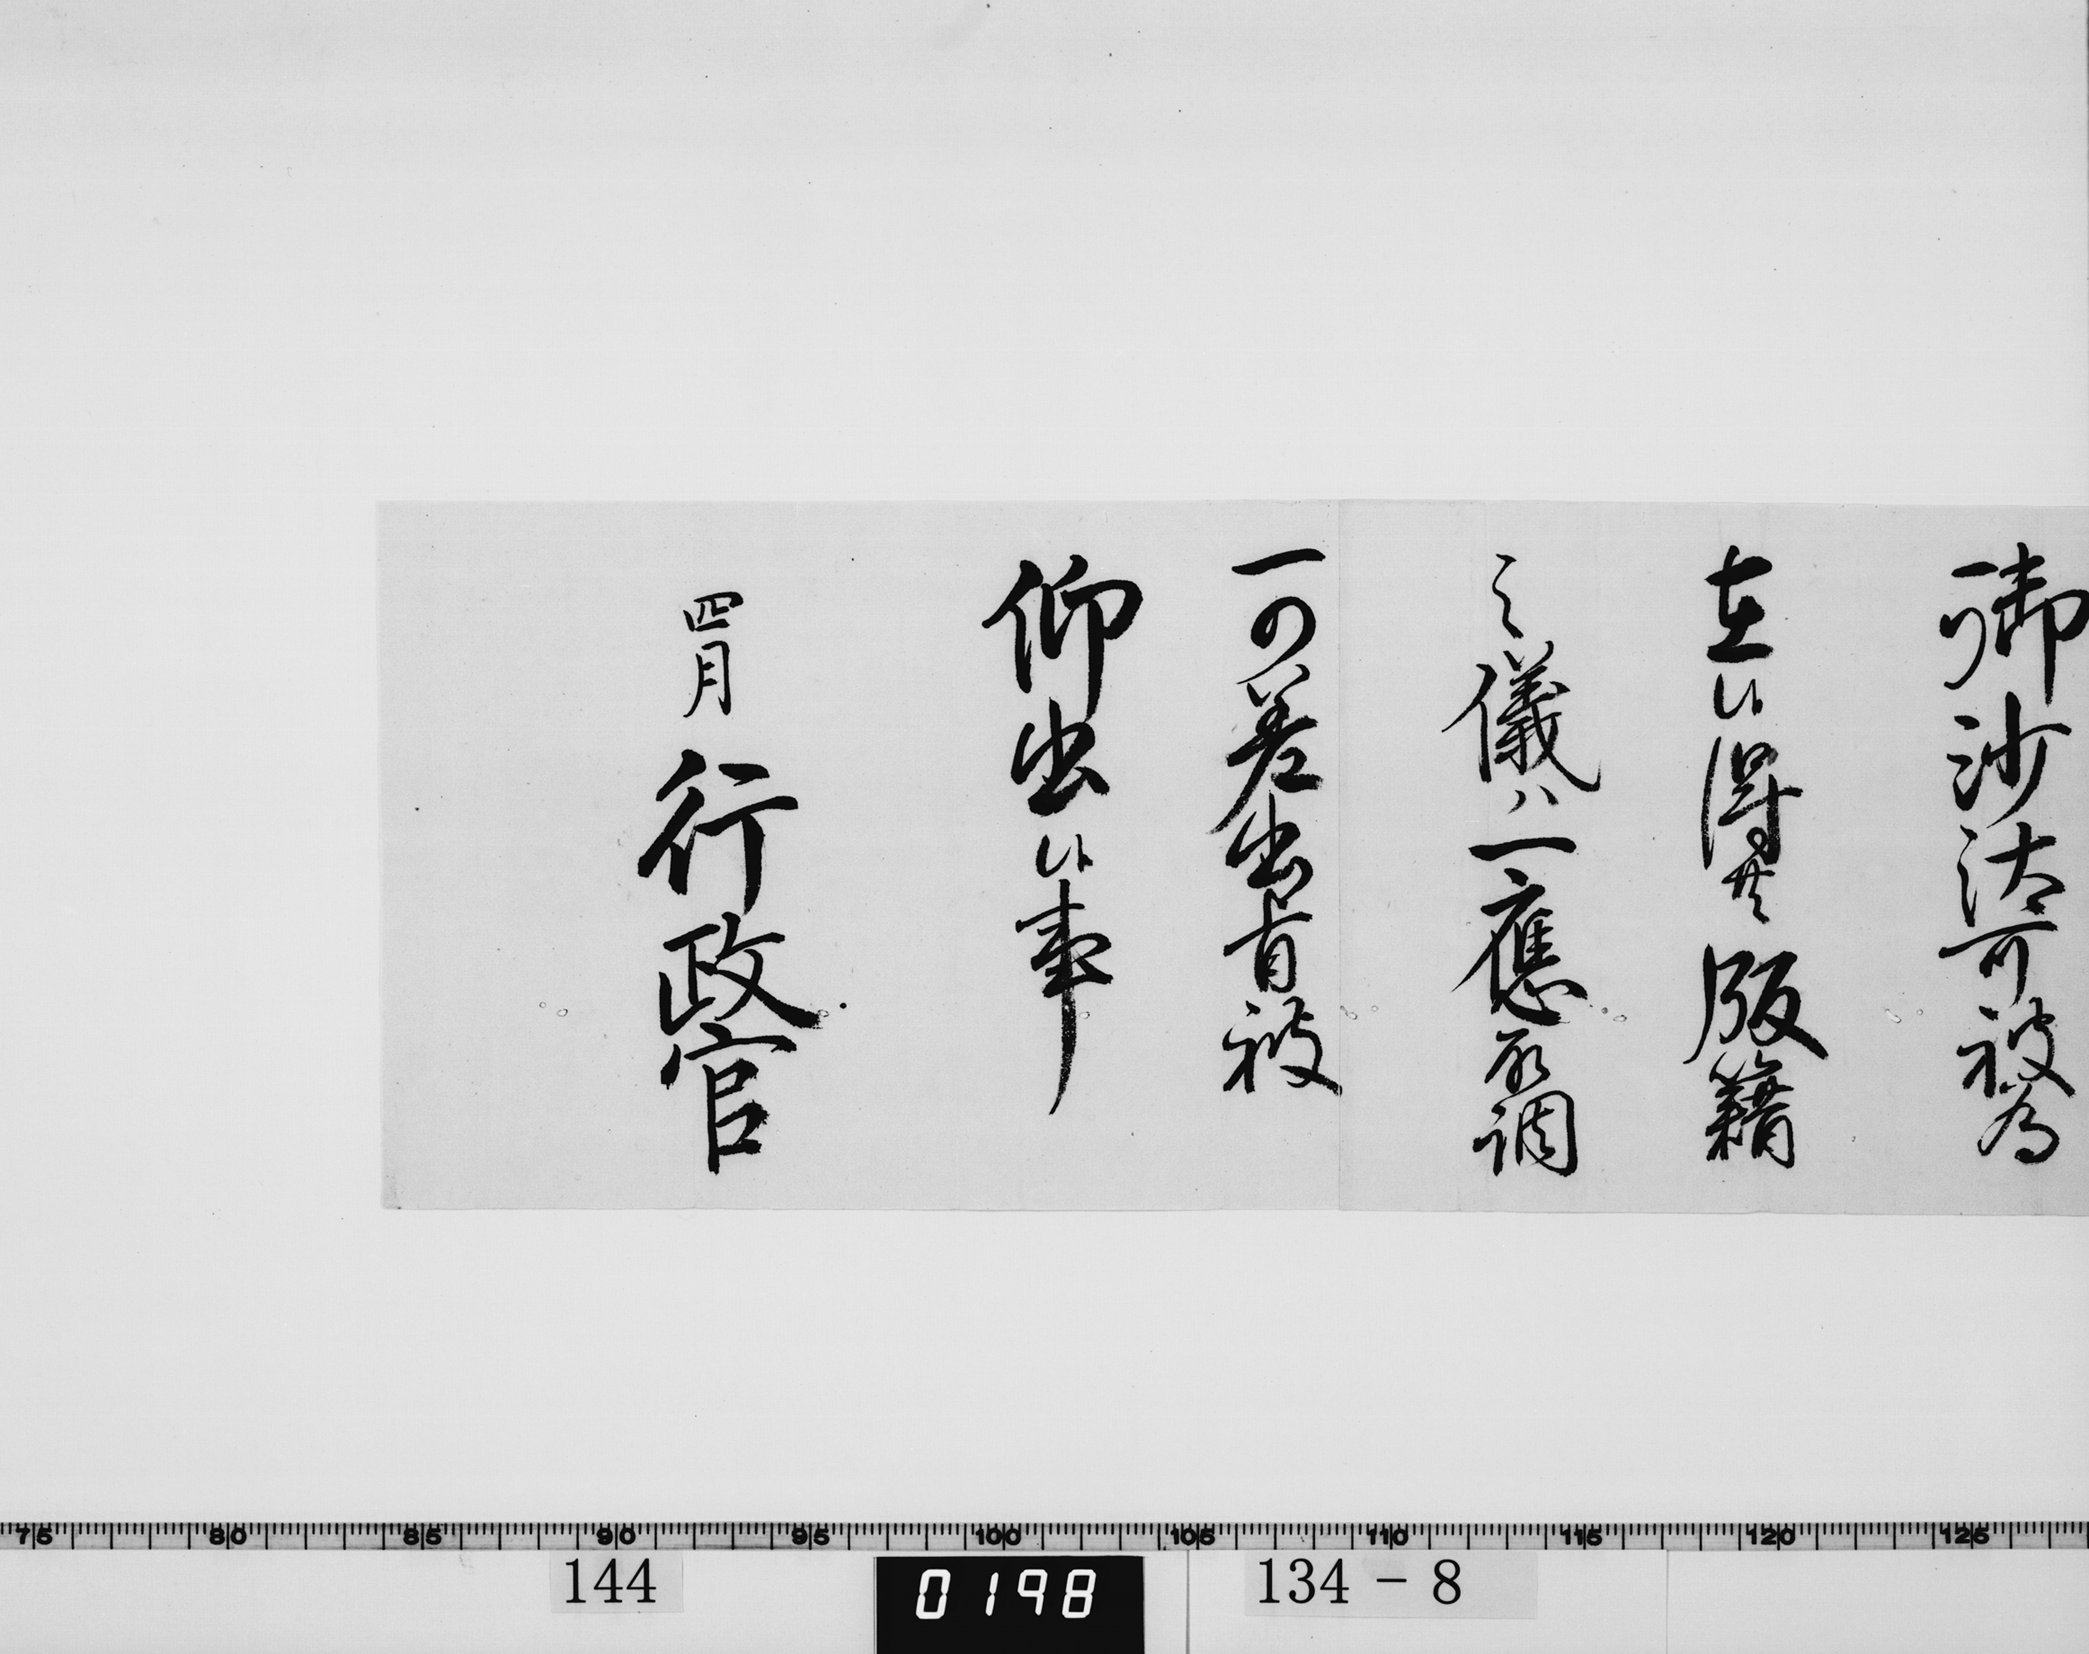 御沙汰可被為
在候得共版籍
之儀ハ一應取調
可差出旨被
仰出候事
四月 行政官
75 80 85 90 95 100 105 110 115 120 125
144 0198 134-8